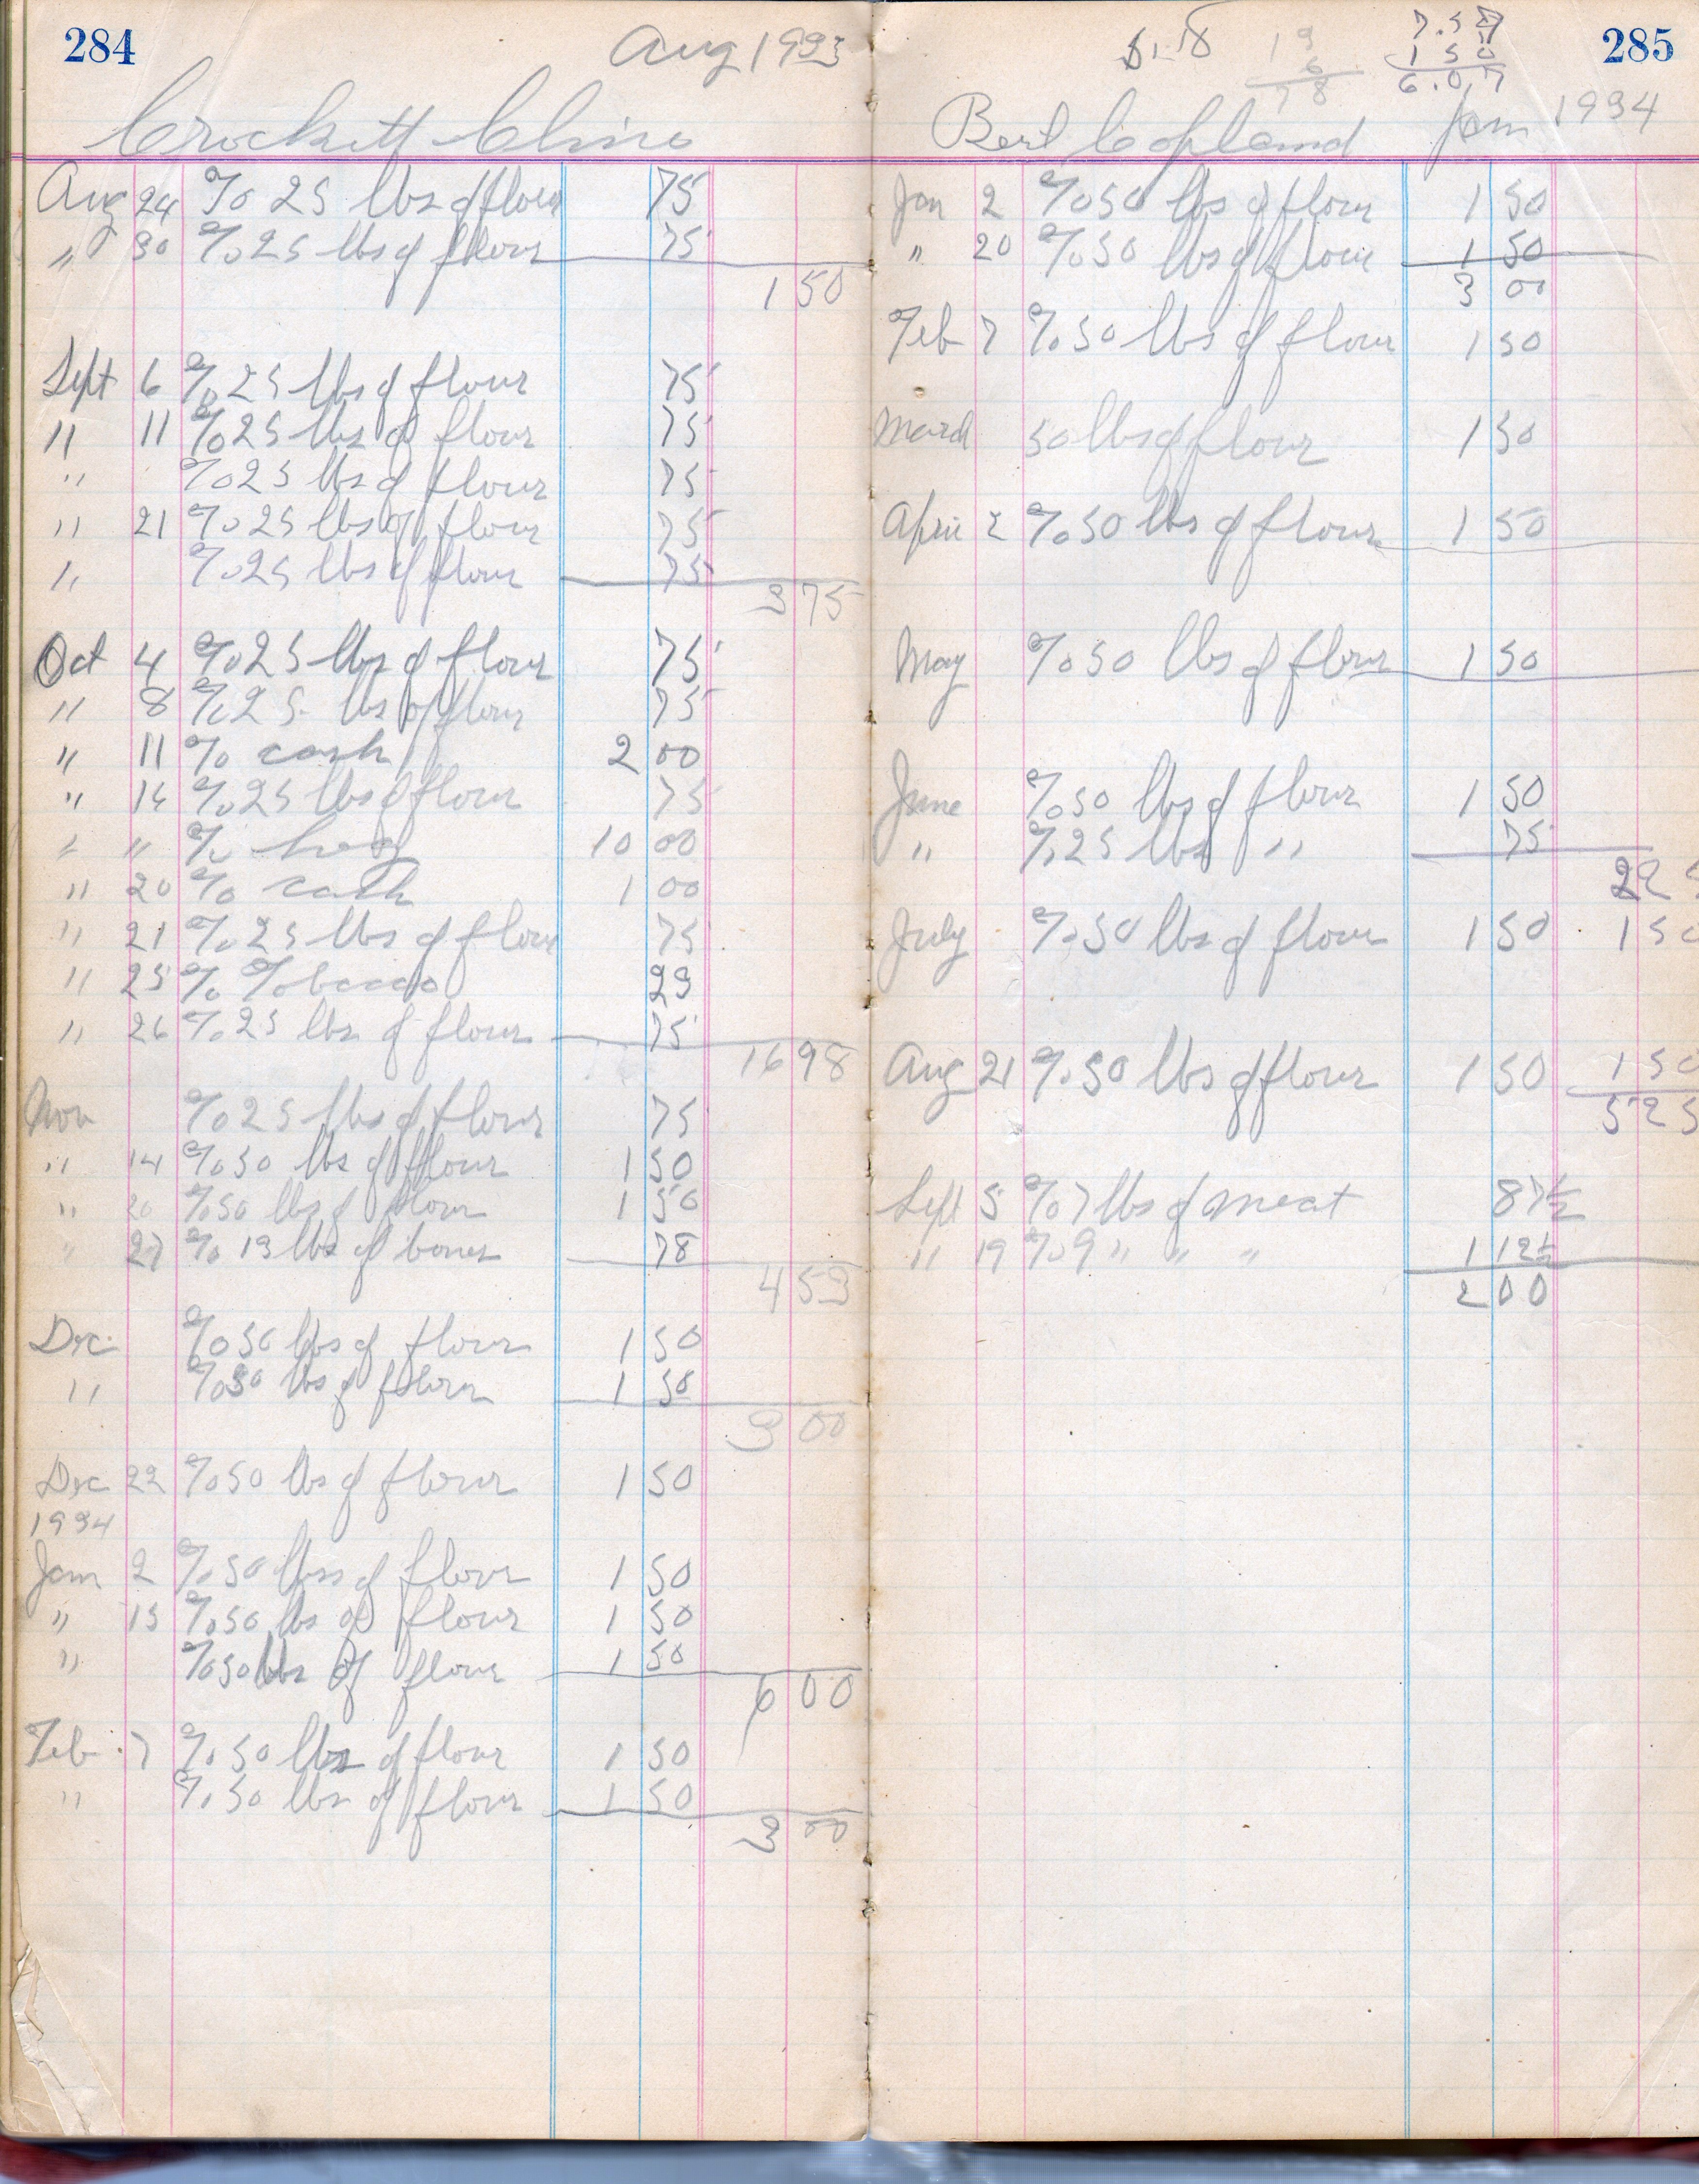 284
Aug 1933
Crockett Cline
Aug 24 % 25 lbs of flour 75
" 30 % 25 lbs of flour 75
1 50
Sept 6 % 25 lbs of flour 75
" 11 % 25 lbs of flour 75
" % 25 lbs of flour 75
" 21 % 25 lbs of flour 75
" % 25 lbs of flour 75
3 75
Oct 4 % 25 lbs of flour 75
" 8 % 25 lbs of flour 75
" 11 % cash 2 00
" 14 % 25 lbs of flour 75
" " % hog 10 00
" 20 % cash 1 00
" 21 % 25 lbs of flour 75
" 25 % Tobacco 23
" 26 % 25 lbs of flour 75
16 98
Nov % 25 lbs of flour 75
" 14 % 50 lbs of flour 1 50
" 20 % 50 lbs of flour 1 50
" 27 % 13 lbs of bones 78
4 53
Dec % 50 lbs of flour 1 50
" % 50 lbs of flour 1 50
3 00
Dec 22 % 50 lbs of flour 1 50
1934
Jan 2 % 50 lbs of flour 1 50
" 15 % 50 lbs of flour 1 50
" % 50 lbs of flour 1 50
6 00
Feb 7 % 50 lbs of flour 1 50
" % 50 lbs of flour 1 50
3 00
285
7.57
1 50
6.07
13
6
78
Bert Copland Jan 1934
Jan 2 % 50 lbs of flour 1 50
" 20 % 50 lbs of flour 1 50
3 00
Feb 7 % 50 lbs of flour 1 50
March 50 lbs of flour 1 50
April 2 % 50 lbs of flour 1 50
May % 50 lbs of flour 1 50
June % 50 lbs of flour 1 50
" % 25 lbs " 75
2 25
July % 50 lbs of flour 1 50 1 50
Aug 21 % 50 lbs of flour 1 50 1 50
5 25
Sept 5 % 7 lbs of meat 87½
" 19 % 9 " " " 1 12½
2 00